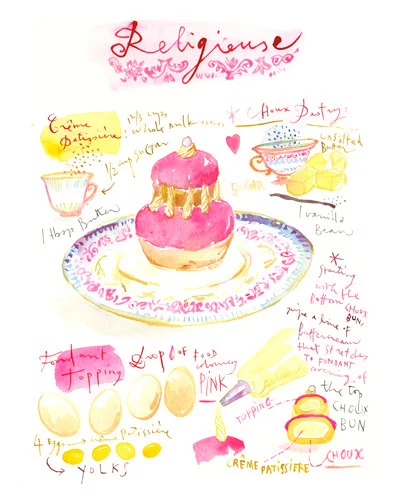 Religieuse
Crème
Patissière
whole milk
1/2 cup SUGAR
1 tbsp Butter
* Choux Pastry:
unsalted
Butter
SUGAR
1 vanilla
Bean
*
Starting
with the
bottom CHOUX
BUN,
pipe a line of
Buttercream
that stretches
TO FONDANT
covering of
the top
CHOUX
BUN
Fondant
Topping
Drop of FOOD
colouring
PINK
TOPPING
4 Eggs crème Patissière
YOLKS
CRÈME PATISSIERE
CHOUX